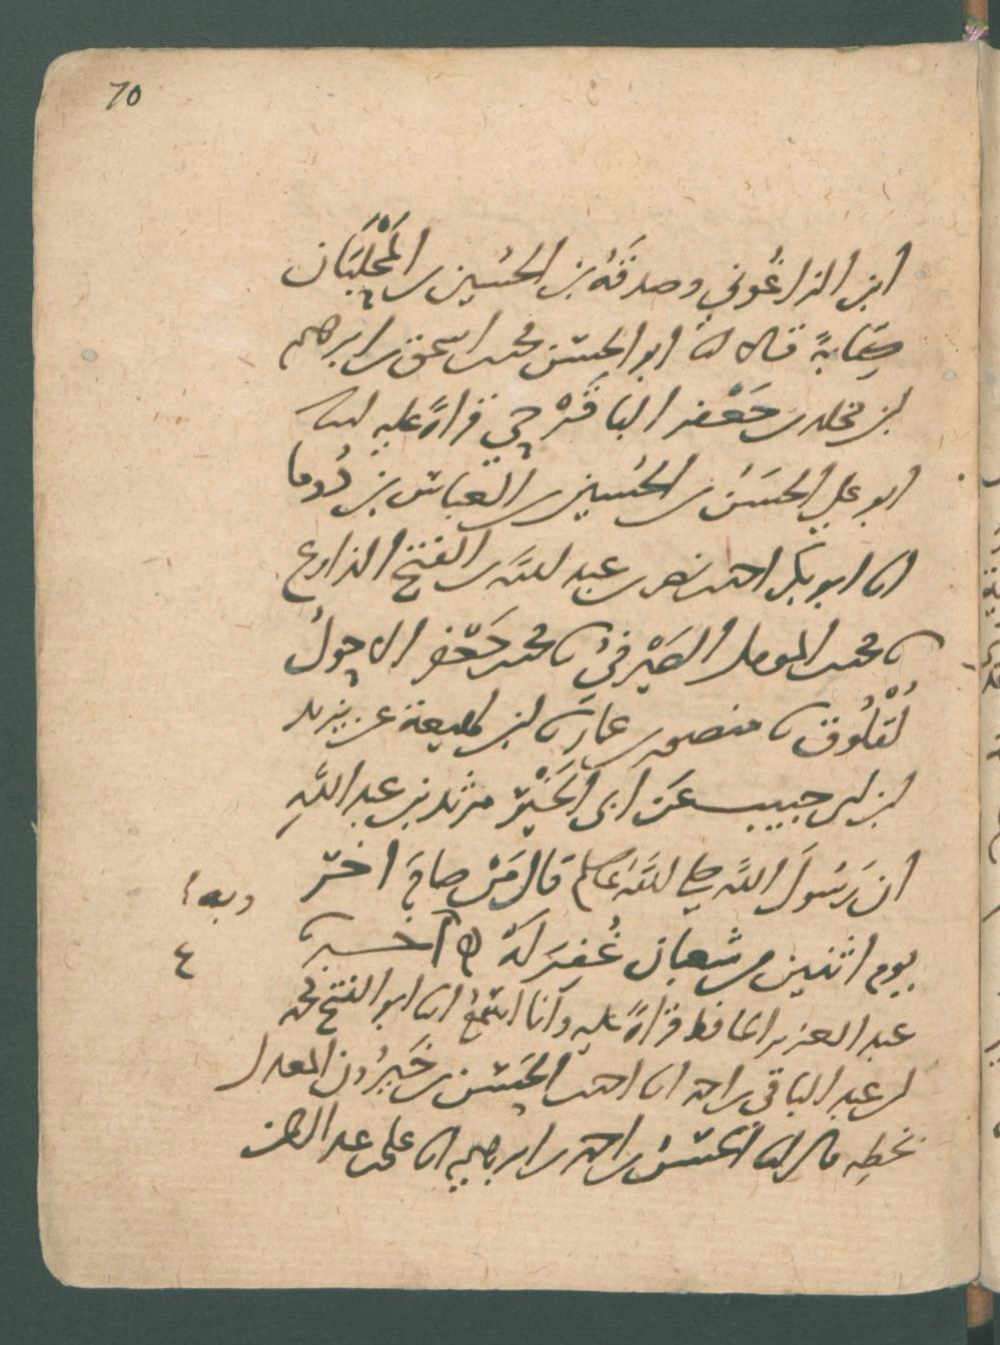 70
ابن الزاغُوني وصدقة بن الحسين المَحْلَبَان
كتابةً قالا انا ابو الحسن محمد اسحق بن ابرهيم
بن مخلد بن جَعْفر الباقَرْحي قراةً عليه انا
ابو علي الحسَن بن الحُسين بن العباس بن دُوما
انا ابو بكر احمد بن نصر بن عبد الله بن الفتح الذارع
نا محمد المومل الصَيْرفي نا محمد جَعْفر الاحول
لُقْلُوق نا منصور بن عمار نا ابن لهيعة عن يزيد
بن ابي حبيب عَن ابى الخَيْر مرثد بن عبد اللهِ
ان رَسُولَ الله صلى الله عليه وسلم قال مَن صامَ اخر
يوم اثنين من شعبان غُفرَ لهُ
عبد العزيز الحافظ قراةً عليه وانا اسمعُ انا ابو الفتح محمد
بن عبد الباقي بن احمد انا احمد الحسن بن خَيرُون المعدل
بخطِه قال انا الحسن بن احمد بن ابرهيم انا علي بن عبد الرحمن